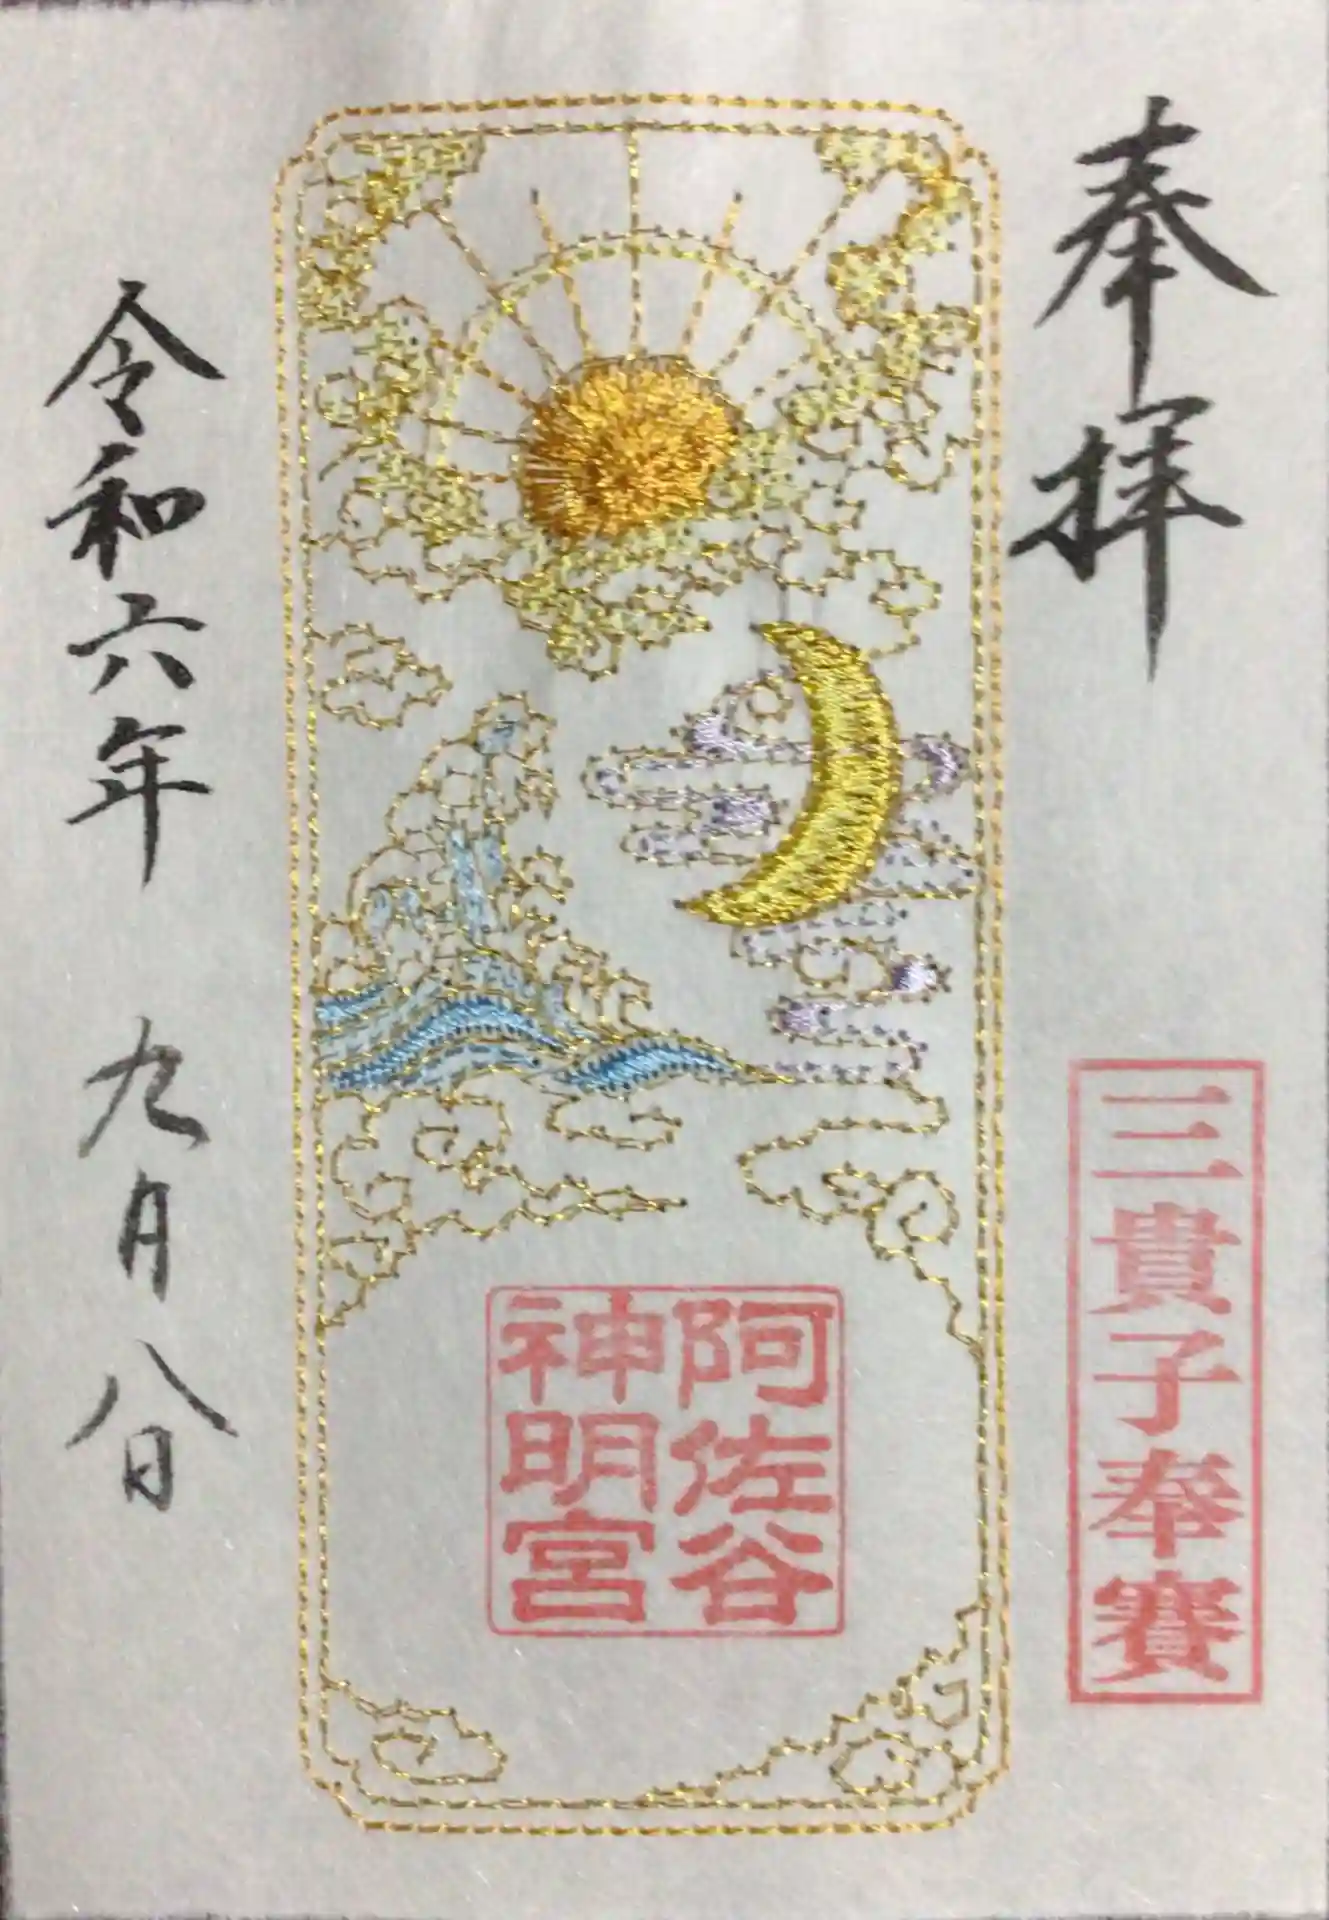 奉拝
三貴子奉賽
阿佐谷
神明宮
令和六年 九月八日